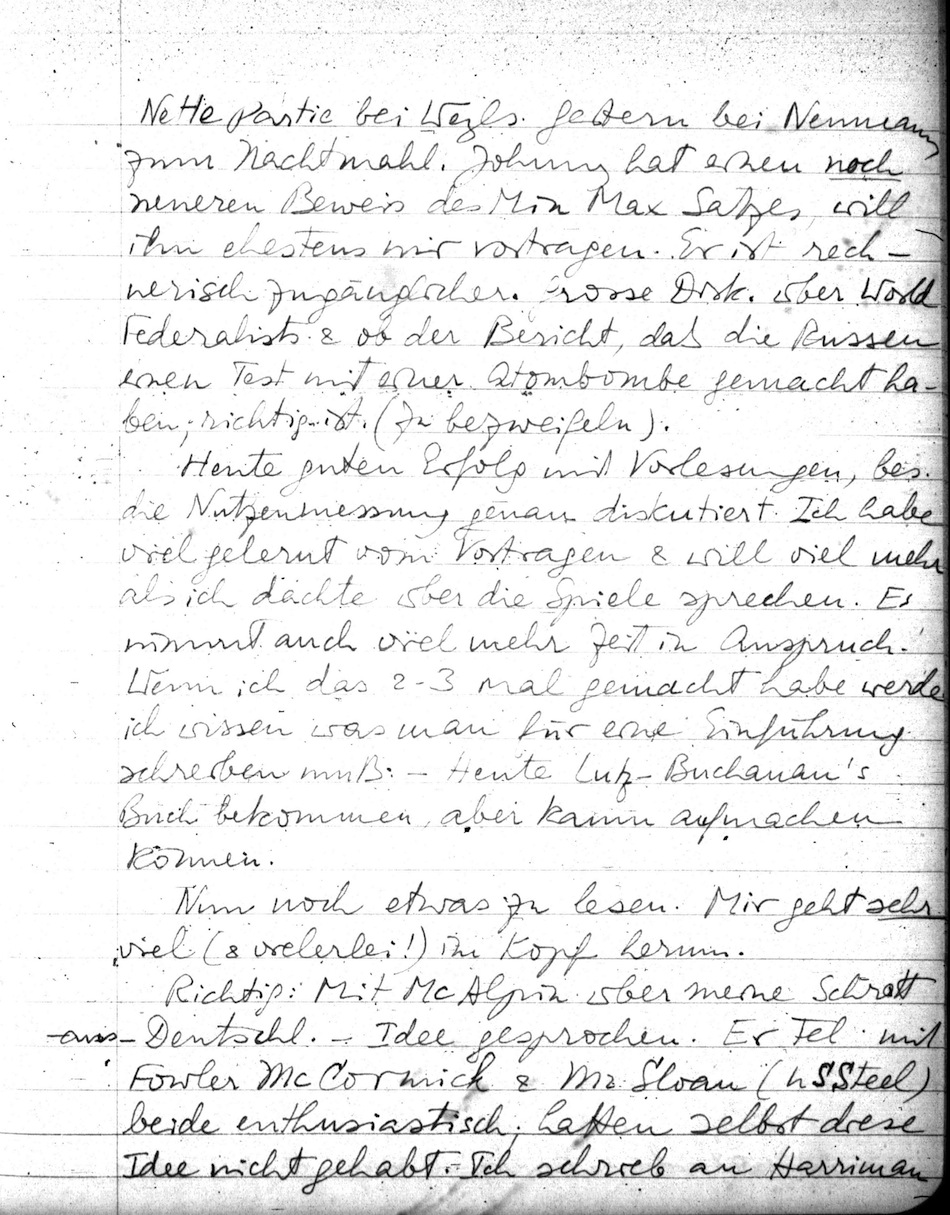 Nette Partie bei Weyls. Gestern bei Neumann
zum Nachtmahl. Johnny hat einen noch
neueren Beweis des Min Max Satzes, will
ihn ehestens mir vortragen. Er ist rech-
nerisch zugänglicher. Grosse Disk. über World
Federalists & ob der Bericht, daß die Russen
einen Test mit einer Atombombe gemacht ha-
ben, richtig ist. (Zu bezweifeln).
Heute guten Erfolg mit Vorlesungen, bes.
die Nutzenmessung genau diskutiert. Ich habe
viel gelernt vom Vortragen & will viel mehr
als ich dachte über die Spiele sprechen. Es
nimmt auch viel mehr Zeit in Anspruch.
Wenn ich das 2-3 mal gemacht habe werde
ich wissen was man für eine Einführung
schreiben muß. - Heute Lutz-Buchanan's
Buch bekommen, aber kaum aufmachen
können.
Nun noch etwas zu lesen. Mir geht sehr
viel (& vielerlei!) im Kopf herum.
Richtig: Mit McAlpin über meine Schrott
-aus-Deutschl. - Idee gesprochen. Er Tel. mit
Fowler McCormick & Mr. Sloan (US Steel)
beide enthusiastisch, hatten selbst diese
Idee nicht gehabt. - Ich schrieb an Harriman